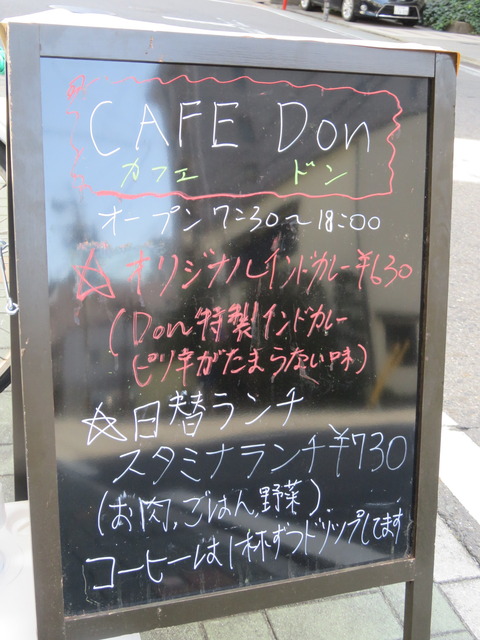 CAFE Don
カフェ ドン
オープン 7:30〜18:00
☆オリジナルインドカレー¥630
(Don特製インドカレー
ピリ辛がたまらない味)
☆日替ランチ
スタミナランチ¥730
(お肉,ごはん,野菜)
コーヒーは1杯ずつドリップしてます